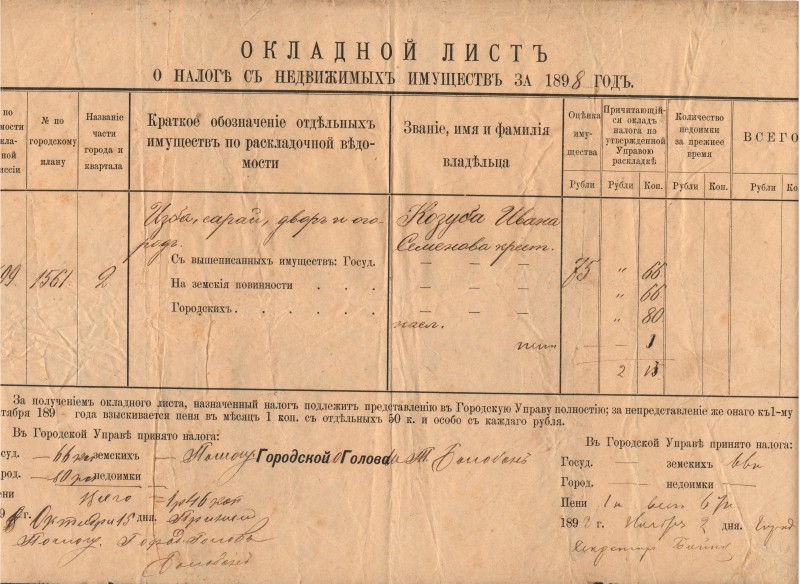 ОКЛАДНОЙ ЛИСТЪ
О НАЛОГѢ СЪ НЕДВИЖИМЫХЪ ИМУЩЕСТВЪ ЗА 1898 ГОДЪ.
по
мости
кла-
ной
иссіи
№ по
городскому
плану
Названіе
части
города и
квартала
Краткое обозначеніе отдѣльныхъ
имуществъ по раскладочной вѣдо-
мости
Званіе, имя и фамилія
владѣльца
Оцѣнка
иму-
щества
Причитающій-
ся окладъ
налога по
утвержденной
Управою
раскладкѣ
Количество
недоимки
за прежнее
время
ВСЕГО
Рубли
Рубли
Коп.
Рубли
Коп.
Рубли
Ко
Изба, сарай, дворъ и ого-
родъ.
Козуба Ивана
Семенова крест.
99.
1561
2
Съ вышеписанныхъ имуществъ: Госуд. — — —
75 " 66
На земскія повинности . . . — — —
" 66
Городскихъ . . . . . — — —
" 80
насл.
пени — — 1
2 13
За полученіемъ окладного листа, назначенный налогъ подлежитъ представленію въ Городскую Управу полностію; за непредставленіе же онаго къ 1-му
тября 189 года взыскивается пеня въ мѣсяцъ 1 коп. съ отдѣльныхъ 50 к. и особо съ каждаго рубля.
Въ Городской Управѣ принято налога:
осуд. — 66 коп земскихъ —
ород. — 80 коп недоимки —
Пени Всего = 1р 46 коп
г. Октября 15 дня.
Помощ. Городской Голова
Помощ. Город. Головы
Въ Городской Управѣ принято налога:
Госуд. — земскихъ 66к
Город. — недоимки —
Пени 1к 67к
1898 г. Ноября 2 дня.
Секретарь